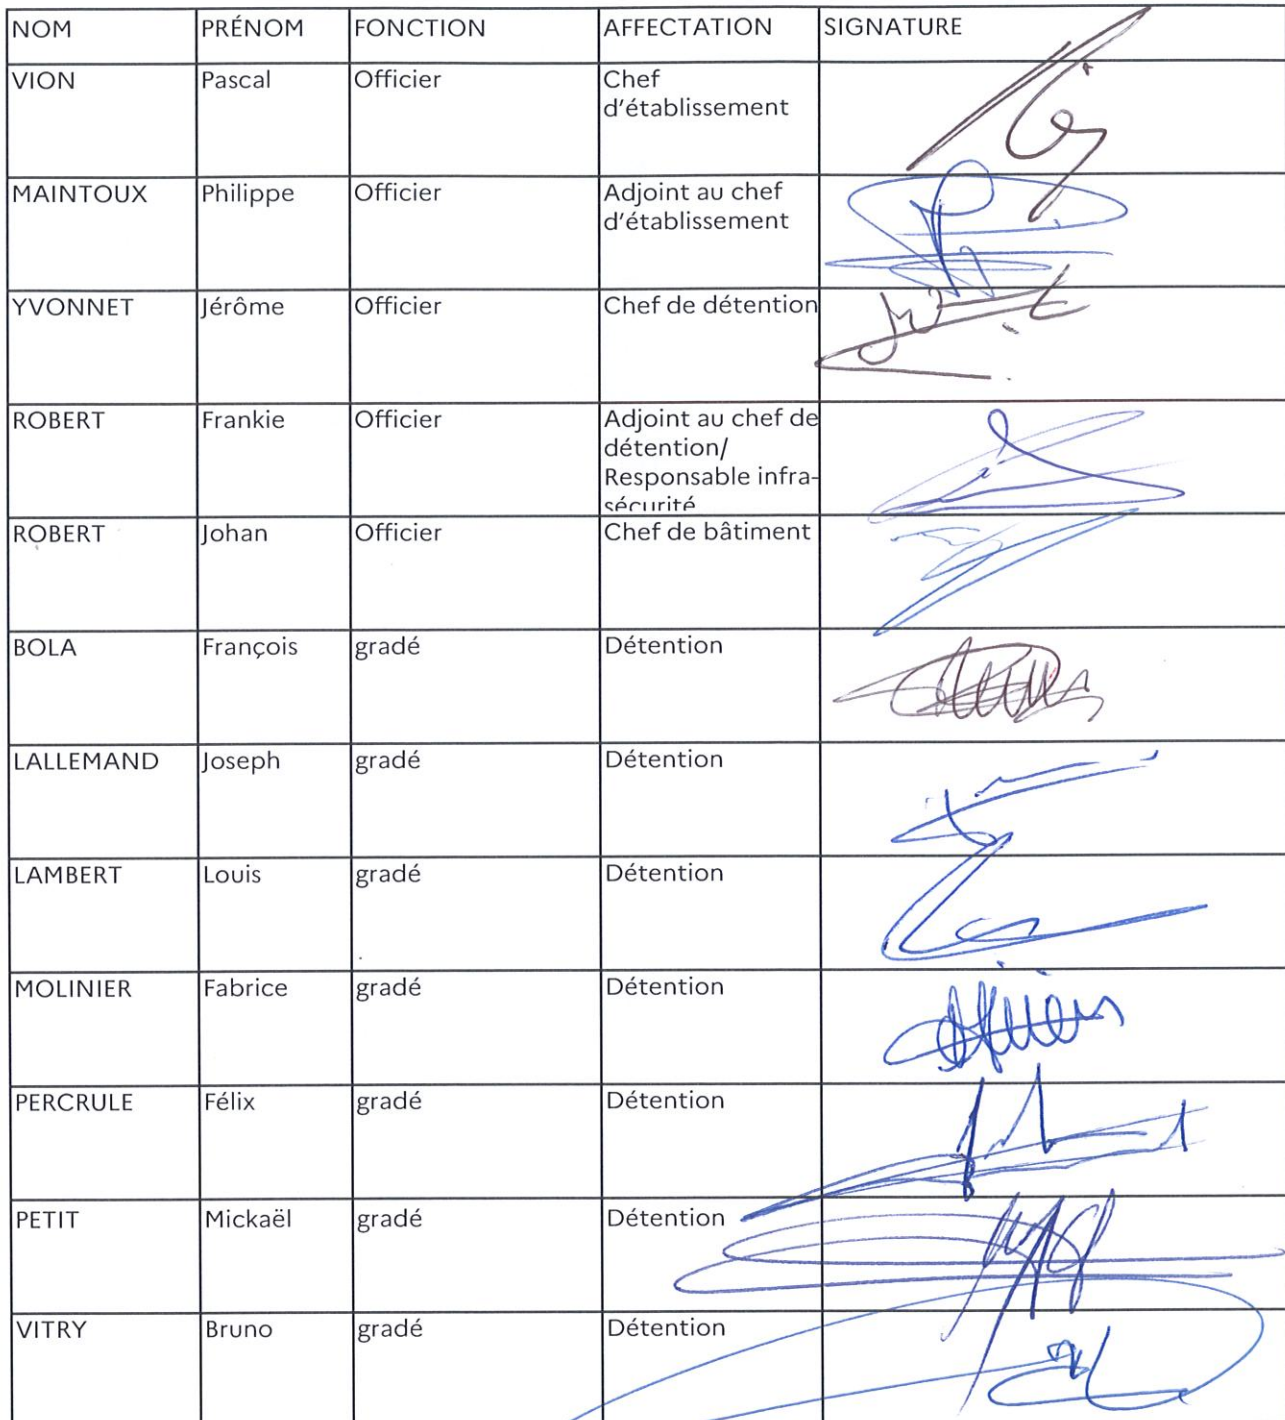 NOM PRÉNOM FONCTION AFFECTATION SIGNATURE
VION Pascal Officier Chef
d'établissement
MAINTOUX Philippe Officier Adjoint au chef
d'établissement
YVONNET Jérôme Officier Chef de détention
ROBERT Frankie Officier Adjoint au chef de
détention/
Responsable infra-
sécurité
ROBERT Johan Officier Chef de bâtiment
BOLA François gradé Détention
LALLEMAND Joseph gradé Détention
LAMBERT Louis gradé Détention
MOLINIER Fabrice gradé Détention
PERCRULE Félix gradé Détention
PETIT Mickaël gradé Détention
VITRY Bruno gradé Détention